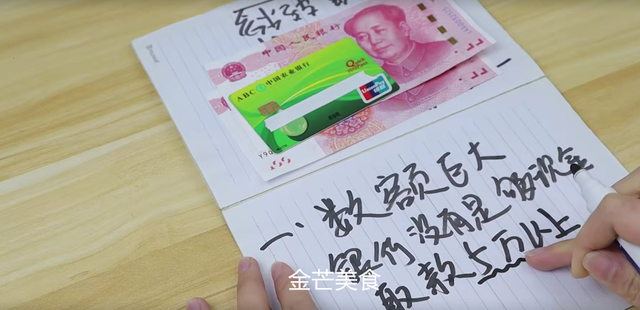 中国人民银行
ABC 中国农业银行
UnionPay
银联
一、数额巨大
银行没有足够现金
取款5万以上
金芒美食